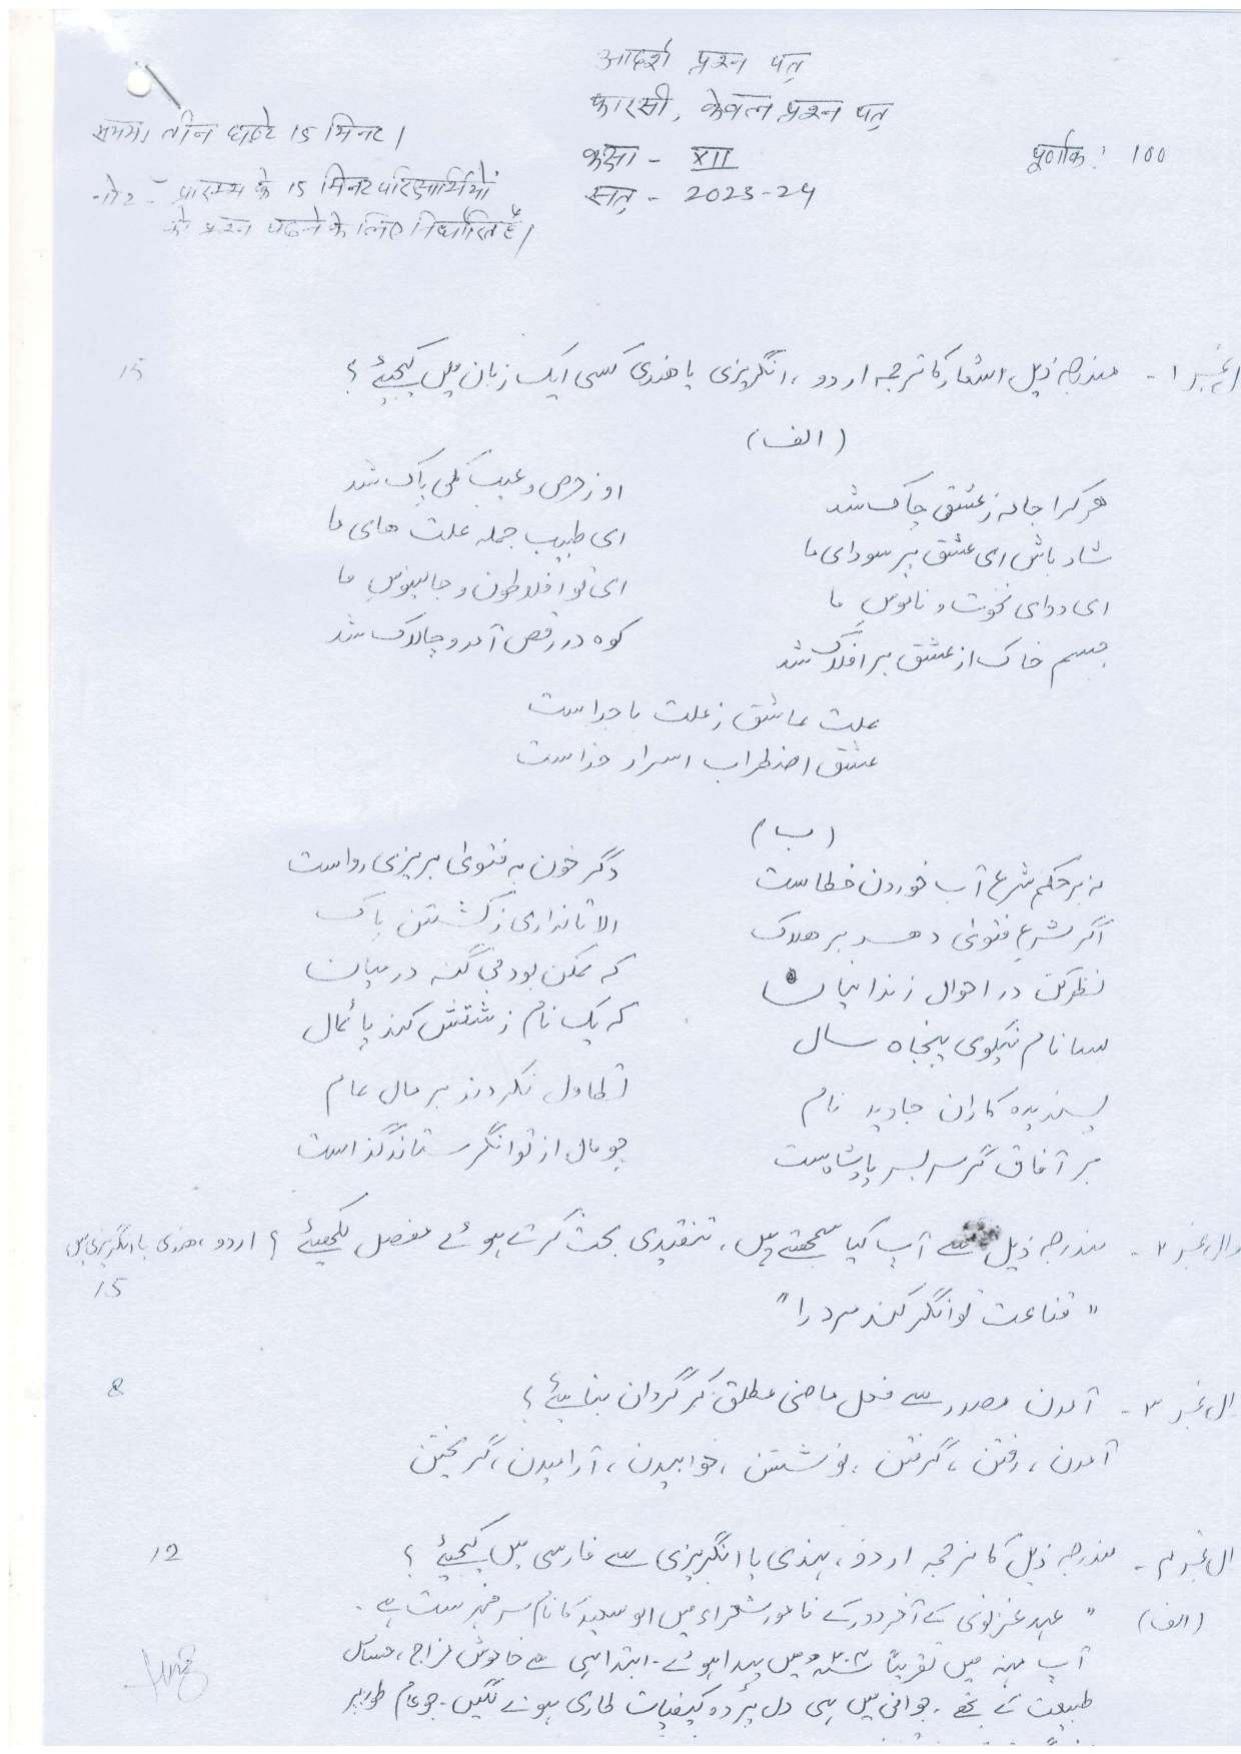 आदर्श प्रश्न पत्र
फारसी, केवल प्रश्न पत्र
समय। तीन घण्टे 15 मिनट।
कक्षा - XII
पूर्णांक: 100
सत्र - 2023-24
नोट - प्रारम्भ के 15 मिनट परिक्षार्थियों
को प्रश्न पढने के लिए निर्धारित है।
مندرجہ ذیل اشعار کا ترجمہ اردو، انگریزی یا ہندی کسی ایک زبان میں کیجیئے ؟ 15
(الف)
ھر کرا جامہ ز عشقی چاک شد او ز حرص و عیب کلی پاک شد
شاد باش ای عشق پر سودای ما ای طبیب جملہ علت های ما
ای دوای نخوت و ناموس ما ای تو افلاطون و جالینوس ما
جسم خاک از عشق بر افلاک شد کوہ در رقص آمد و چالاک شد
علت عاشق ز علت ها جداست
عشق اضطراب اسرار خداست
(ب)
نہ بر حکم شرع آب خوردن خطاست وگر خون بہ فتویٰ بریزی رواست
اگر شرع فتویٰ دھد بر ھلاک الا تا نداری ز کشتن باک
نظر کن در احوال زندانیان کہ ممکن بود بی گنہ در میان
بسا نام نیکوی پنجاہ سال کہ یک نام زشتش کند پائمال
پسندیدہ کاران جاوید نام تطاول نکردند بر مال عام
بر آفاق گر سر بسر پادشاست چو مال از توانگر ستاند گداست
وال نمبر ۲ - مندرجہ ذیل سے آپ کیا سمجھتے ہیں، تنقیدی بحث کرتے ہوئے مفصل لکھیئے ؟ اردو، ھندی یا انگریزی میں
15
" قناعت توانگر کند مرد را "
ال نمبر ۳ - آمدن مصدر سے فعل ماضی مطلق کر گردان بنایئے ؟ 8
آمدن، رفتن، گرفتن، نوشتن، خوابیدن، آرامیدن، گریختن
ال نمبر ۴ - مندرجہ ذیل کا ترجمہ اردو، ہندی یا انگریزی سے فارسی میں کیجیئے ؟ 12
(الف) " عہد غزنوی کے آخر دور کے نامور شعراء میں ابو سعید کا نام سر فہرست ہے۔
آپ مہنہ میں تقریباً میں پیدا ہوئے۔ ابتدا ہی سے خاموش مزاج،
طبیعت کے تھے۔ جوانی میں ہی دل پر وہ کیفیات طاری ہونے لگیں۔ جو عام طور پر